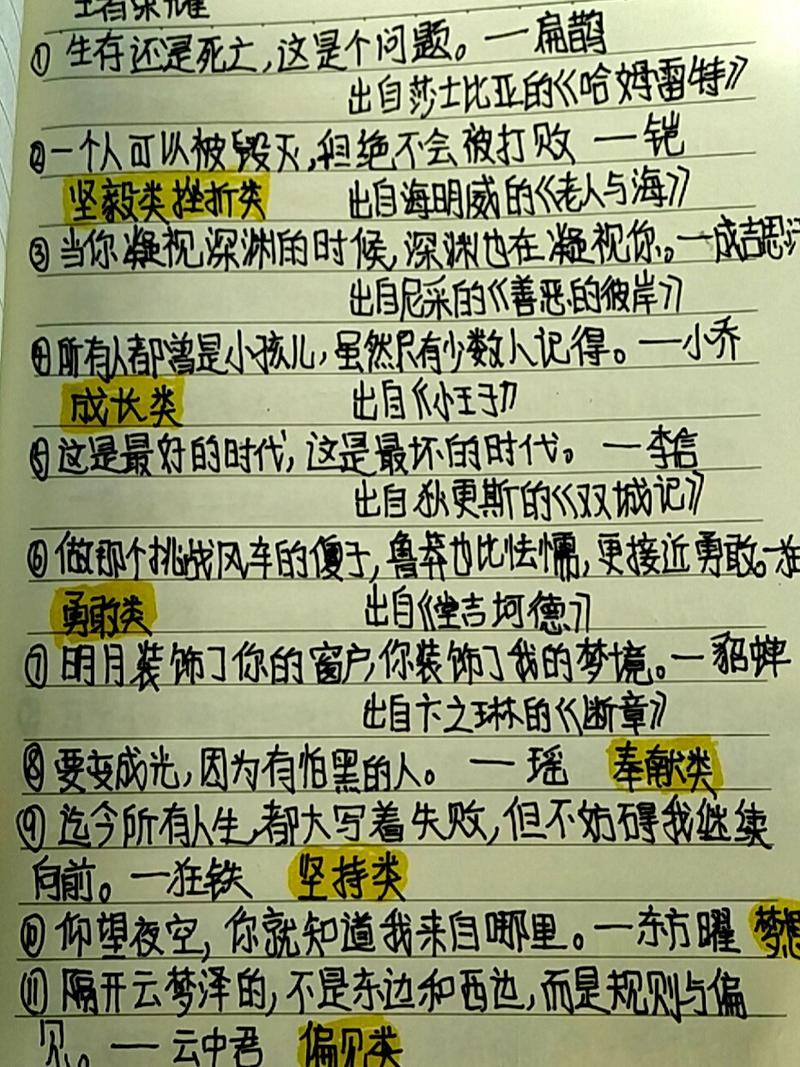 王者荣耀
①生存还是死亡,这是个问题。—扁鹊
出自莎士比亚的《哈姆雷特》
②一个人可以被毁灭,但绝不会被打败 —铠
坚毅类挫折类 出自海明威的《老人与海》
③当你凝视深渊的时候,深渊也在凝视你。—成吉思汗
出自尼采的《善恶的彼岸》
④所有人都曾是小孩儿,虽然只有少数人记得。—小乔
成长类 出自《小王子》
⑤这是最好的时代,这是最坏的时代。 —李信
出自狄更斯的《双城记》
⑥做那个挑战风车的傻子,鲁莽也比怯懦,更接近勇敢。—狂
勇敢类 出自《堂吉坷德》
⑦明月装饰了你的窗户,你装饰了我的梦境。—貂蝉
出自卞之琳的《断章》
⑧要变成光,因为有怕黑的人。 —瑶 奉献类
⑨迄今所有人生,都大写着失败,但不妨碍我继续
向前。—狂铁 坚持类
⑩仰望夜空,你就知道我来自哪里。—东方曜 梦想
⑪隔开云梦泽的,不是东边和西边,而是规则与偏
见。—云中君 偏见类